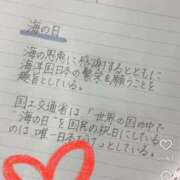 海の日
海の恩恵に感謝するとともに
海洋国日本の繁栄を願うことを
趣旨としている
国土交通省は「世界の国の中で
"海の日"を国民の祝日にしている
のは、唯一日本だけ」としている